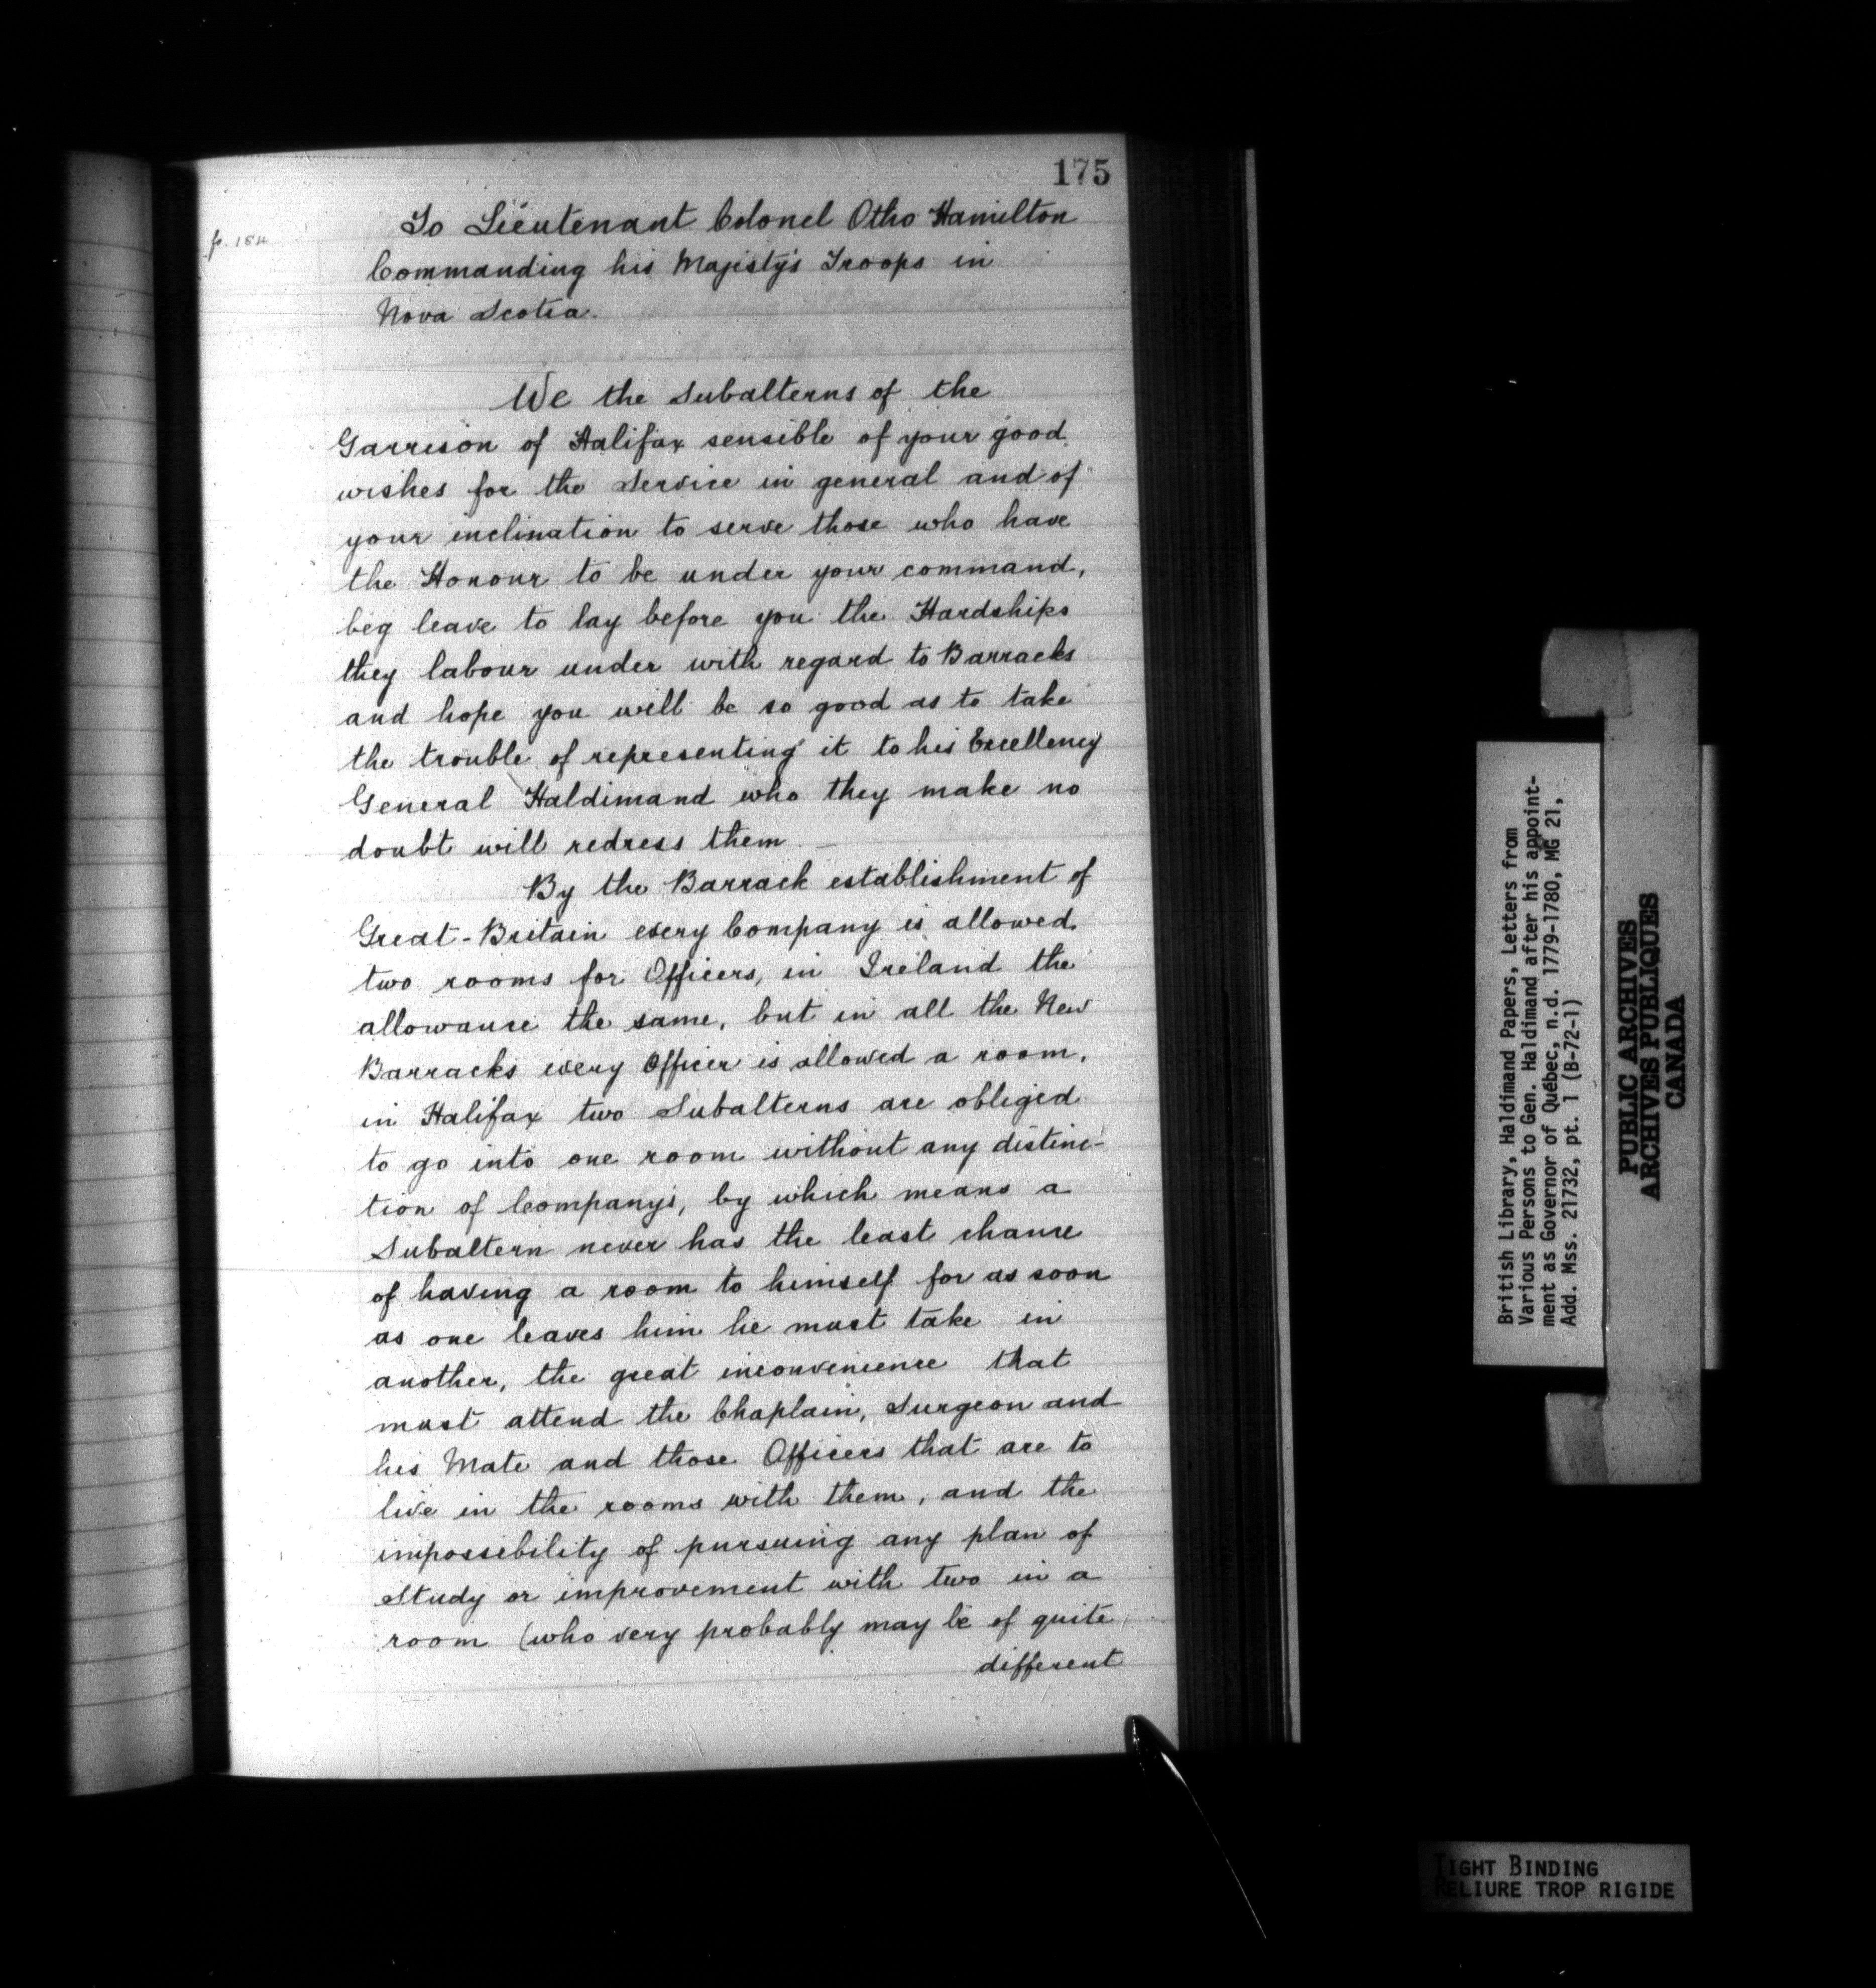 175
fo. 184
To Lieutenant Colonel Otho Hamilton
Commanding his Majesty's Troops in
Nova Scotia.
We the Subalterns of the
Garrison of Halifax sensible of your good
wishes for the Service in general and of
your inclination to serve those who have
the Honour to be under your command,
beg leave to lay before you the Hardships
they labour under with regard to Barracks
and hope you will be so good as to take
the trouble of representing it to his Excellency
General Haldimand who they make no
doubt will redress them. —
By the Barrack establishment of
Great-Britain every Company is allowed
two rooms for Officers, in Ireland the
allowance the same, but in all the New
Barracks every Officer is allowed a room,
in Halifax two Subalterns are obliged
to go into one room without any distinc-
tion of Company's, by which means a
Subaltern never has the least chance
of having a room to himself for as soon
as one leaves him he must take in
another, the great inconvenience that
must attend the Chaplain, Surgeon and
his Mate and those Officers that are to
live in the rooms with them, and the
impossibility of pursuing any plan of
Study or improvement with two in a
room (who very probably may be of quite
different
British Library, Haldimand Papers, Letters from
Various Persons to Gen. Haldimand after his appoint-
ment as Governor of Québec, n.d. 1779-1780, MG 21,
Add. Mss. 21732, pt. 1 (B-72-1)
PUBLIC ARCHIVES
ARCHIVES PUBLIQUES
CANADA
TIGHT BINDING
RELIURE TROP RIGIDE